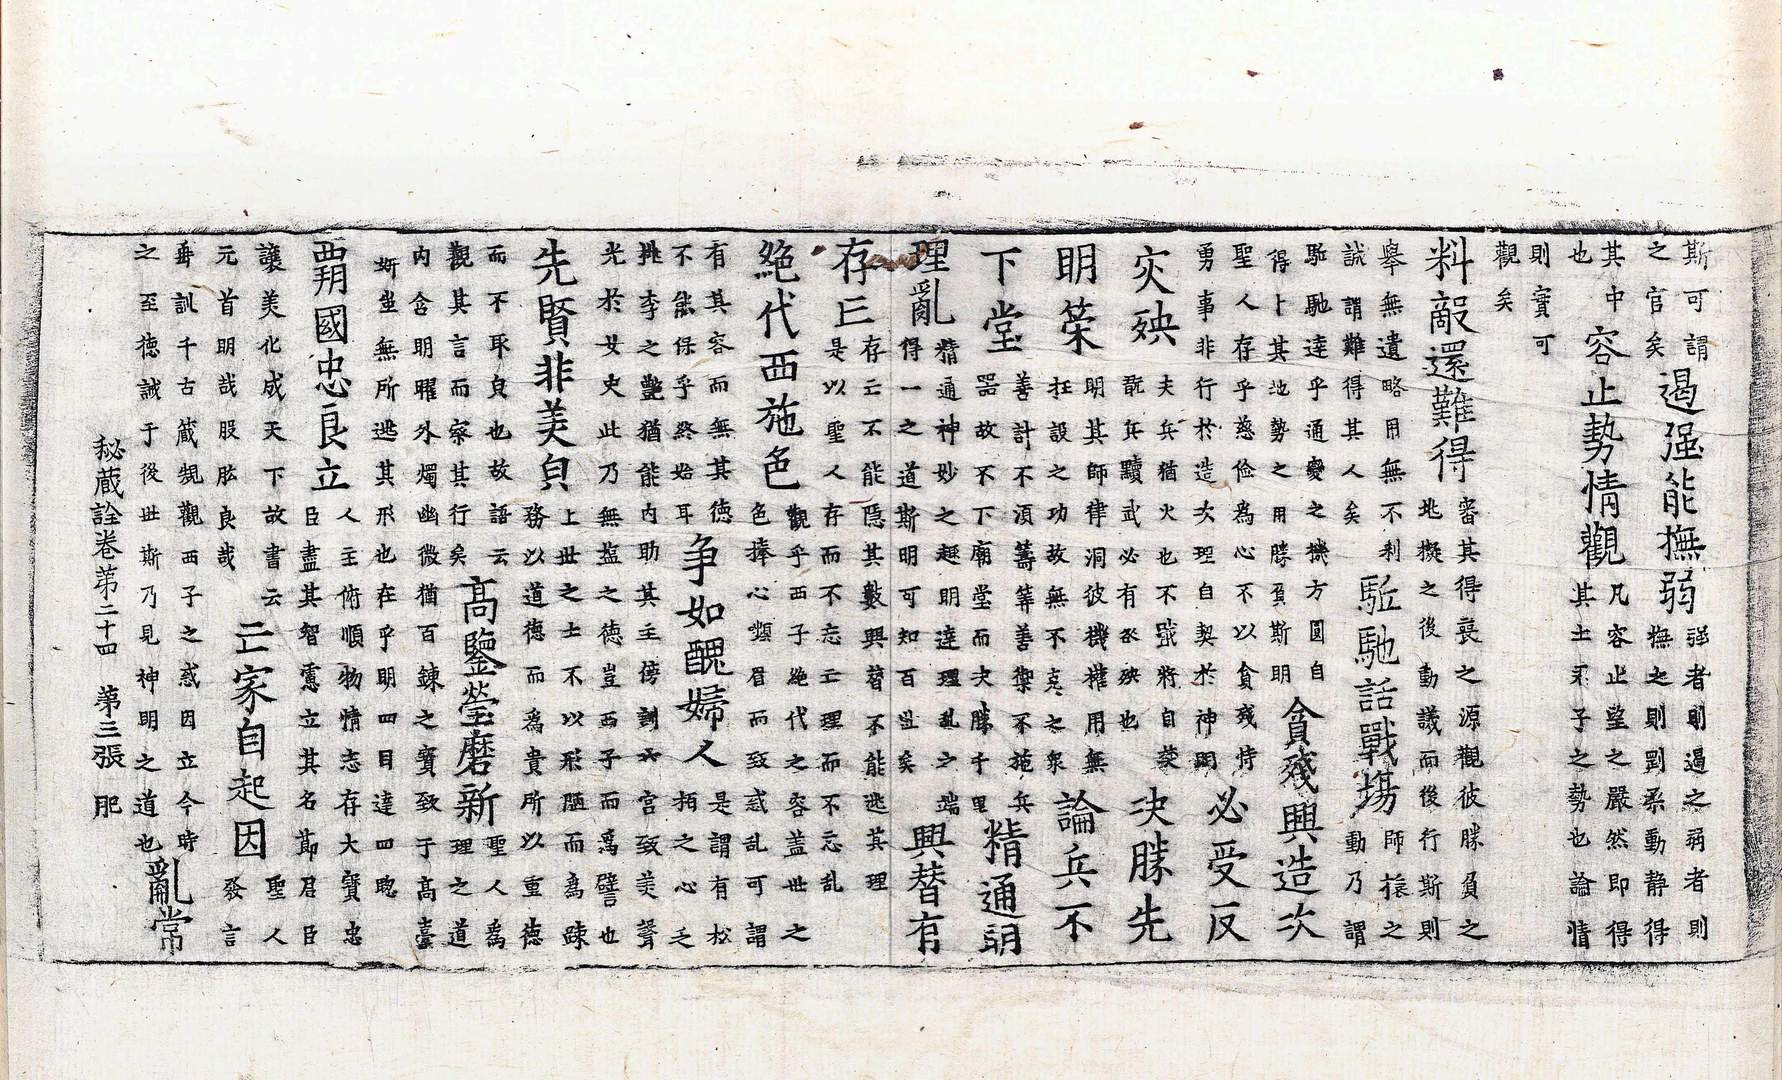 斯可謂之官矣遏强能撫弱强者則遏之弱者則撫之則剛柔動静得
其中也容止勢情觀凡容止望之嚴然即得其士君子之勢也論情
則實可觀矣
料敵還難得審其得喪之源觀彼勝負之地擬之後動議而後行斯則
舉無遺略用無不利誠謂難得其人矣駈馳話戰場師之動乃謂
駈馳達乎通變之機方圓自得卜其地勢之用勝負斯明貪殘興造次
聖人存乎慈儉為心不以貪殘恃勇事非行於造次理自契於神明必受反
灾殃夫兵猶火也不戢將自焚翫兵黷武必有灾殃也决勝先
明筞明其師律洞彼機權用無枉設之功故無不克之衆論兵不
下堂善計不湏籌筭善禦不施兵噐故不下廟堂而决勝千里精通明
理亂精通神妙之趣明達理乱之端得一之道斯明可知百世矣興替有
存亡存亡不能隱其數興替不能逃其理是以聖人存而不忘亡理而不忘乱
絶代西施色觀乎西子絶代之容盖世之色捧心嚬眉而致惑乱可謂
有其容而無其德不能保乎終始耳争如醜婦人是謂有松柏之心乏
桃李之艷猶能内助其主傍訓六宫致美聲光於女史此乃無塩之德豈西子而為譬也
先賢非美皃上世之士不以形陋而為踈務以道德而為貴所以重德
而不取皃也故語云觀其言而察其行矣高鑒瑩磨新聖人為理之道
内含明曜外燭幽微猶百鍊之寶致于高臺姧坐無所逃其形也在乎明四目達四聦
覇國忠良立人主俯順物情志存大寶忠臣盡其智慮立其名莭君臣
讓美化成天下故書云元首明哉股肱良哉亡家自起因聖人發言
垂訓千古箴規觀西子之惑因立今時之至德誡于後世斯乃見神明之道也亂常
秘蔵詮卷第二十四　第三張　肥